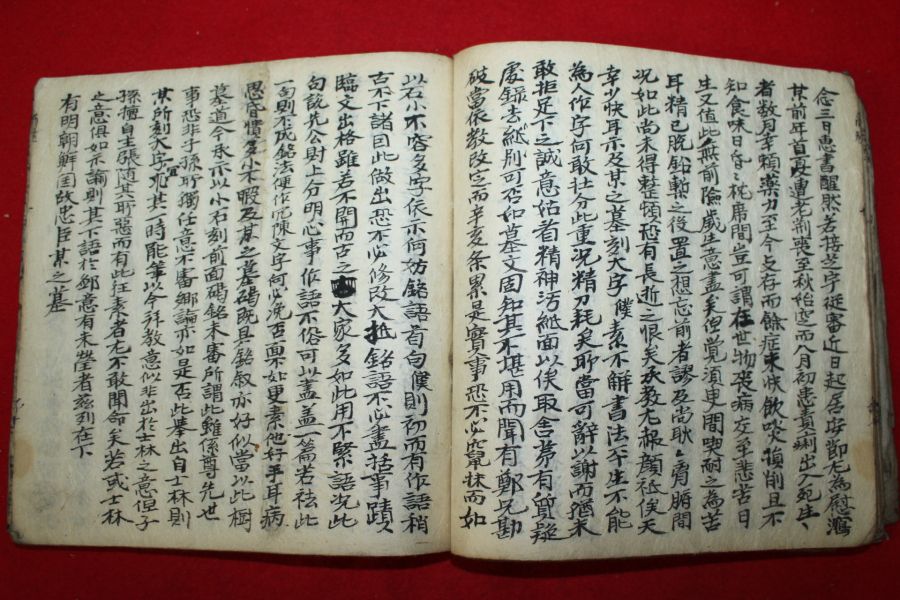 念三日惠書醒然若接芝宇從審近日起居安節尤爲慰瀉
某前年首夏遭老刑喪至秋怡空而八月初患毒痢出入死生
者數月幸賴藥力至今支存而餘症未快飮啖損削且不
知食味日昏枕席間豈可謂在世物喪病左至悲苦日
生又値此無前險歲生意盡矣但覺須臾間喫耐之爲苦
耳精已脫鉛槧之後置之想忘前者謬及尚耿耿胷腑間
况如此尚未得整頓恐有長逝之恨矣承敎尤赧顔祗俟天
幸少快耳示及某之墓刻大字僕素不解書法平生不能
爲人作字何敢壯分此重况精力耗矣耶當可辭以謝而猶未
敢拒足下之誠意姑着精神汚紙面以俟取舍茅有質疑
處錄去紙別可否如墓文固知其不堪用而聞有鄭兄勘
破當依敎改定而辛亥条累是實事恐不必竄狀而如
以石小不容多字依示何妨銘語首句僕則初而有作語稍
古不下諸因此做出恐不必修改大抵銘語不必盡括事蹟
臨文出格雖若不開而古之大家多如此用不緊語况此
句說先公財上分明心事作語不俗可以盖盖一篇若祛此
一句則不成銘法便作冗陳文字何必浼否面不如更素他好手耳病
思昏憒多小不暇及某之墓碣既具銘叙亦好似當以此樹
墓道今承示以小石刻前面碣銘未審所謂此雖係尊先世
事恐非子孫貯獨任意不審鄕論亦如是否此擧出自士林則
某所刻大字宜非其一時能筆以今拜敎意似非出於士林之意但子
孫擅自主張隨其所惡而有此往素者尤不敢聞命矣若或士林
之意俱如示諭則其下語於鄙意有未瑩者玆列在下
有明朝鮮国故忠臣某之墓